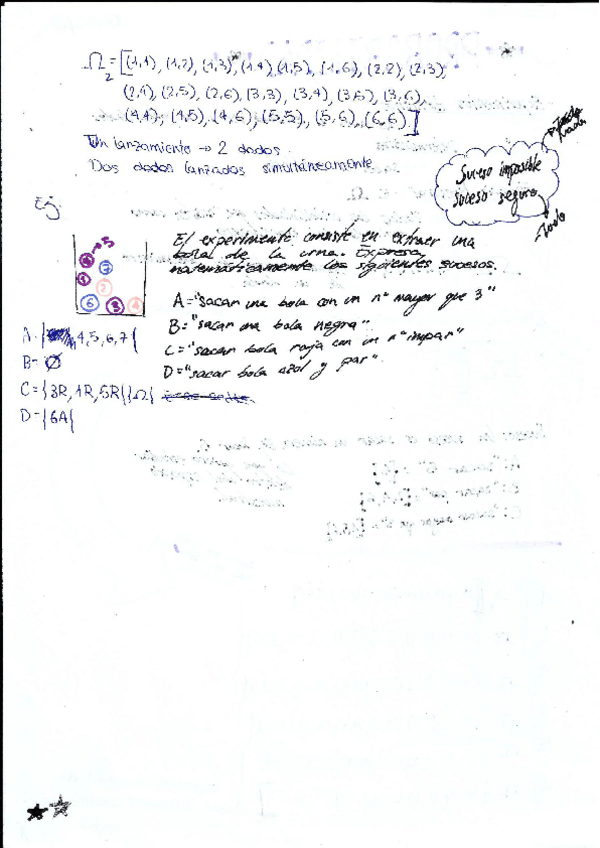 Ω₂ = [(1,1), (1,2), (1,3), (1,4), (1,5), (1,6), (2,2), (2,3),
(2,4), (2,5), (2,6), (3,3), (3,4), (3,5), (3,6),
(4,4), (4,5), (4,6), (5,5), (5,6), (6,6)]
Un lanzamiento → 2 dados
Dos dados lanzados simultáneamente
Suceso imposible
suceso seguro
Todo
Ej
5
7
1
2
6
3
4
El experimento consiste en extraer una
bola de la urna. Expresa
matemáticamente los siguientes sucesos.
A = "sacar una bola con un nº mayor que 3"
B = "sacar una bola negra"
C = "sacar bola roja con un nº impar"
D = "sacar bola azul y par"
A = { 4, 5, 6, 7 {
B = Ø
C = {3R, 1R, 5R} {Ω{
D = {6A{